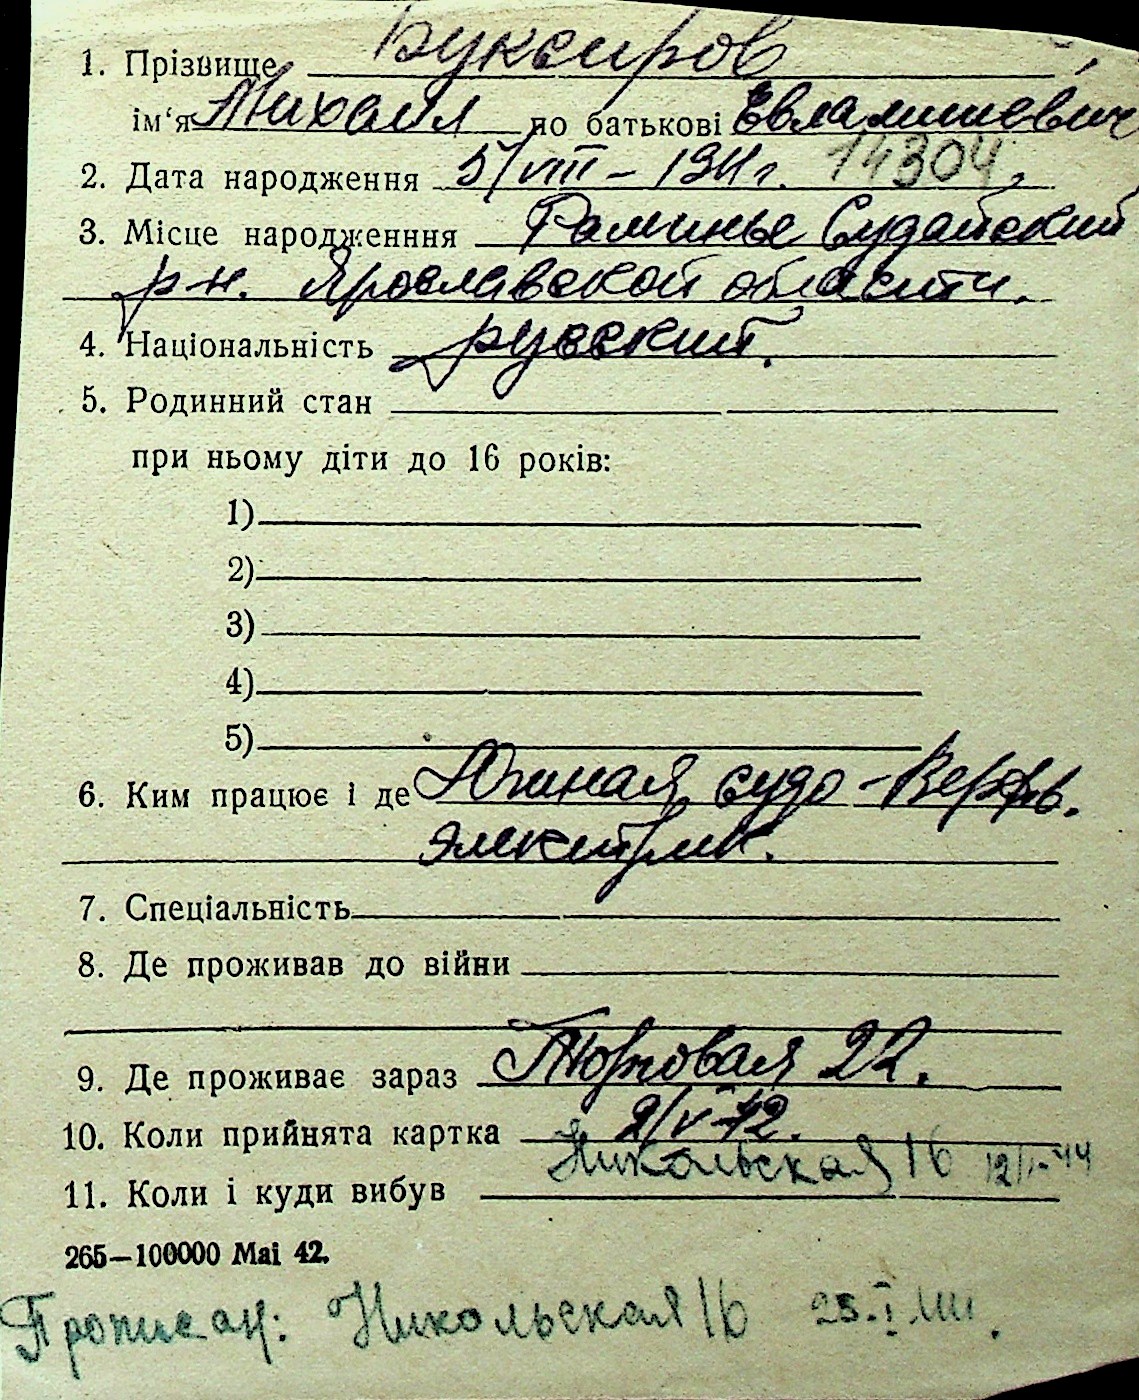 1. Прізвище Буксиров
ім'я Михаил по батькові Евлампиевич
2. Дата народження 5/VIII – 1911 г. 14304
3. Місце народженння Раминье Судайский
р-н. Ярославской области.
4. Національність русский.
5. Родинний стан
при ньому діти до 16 років:
1)
2)
3)
4)
5)
6. Ким працює і де Южная судо-Верфь.
электрик.
7. Спеціальність
8. Де проживав до війни
9. Де проживає зараз Торговая 22.
10. Коли прийнята картка 2/V-42.
Никольская 16
11. Коли і куди вибув
265—100000 Mai 42.
Прописан: Никольская 16 25.I.